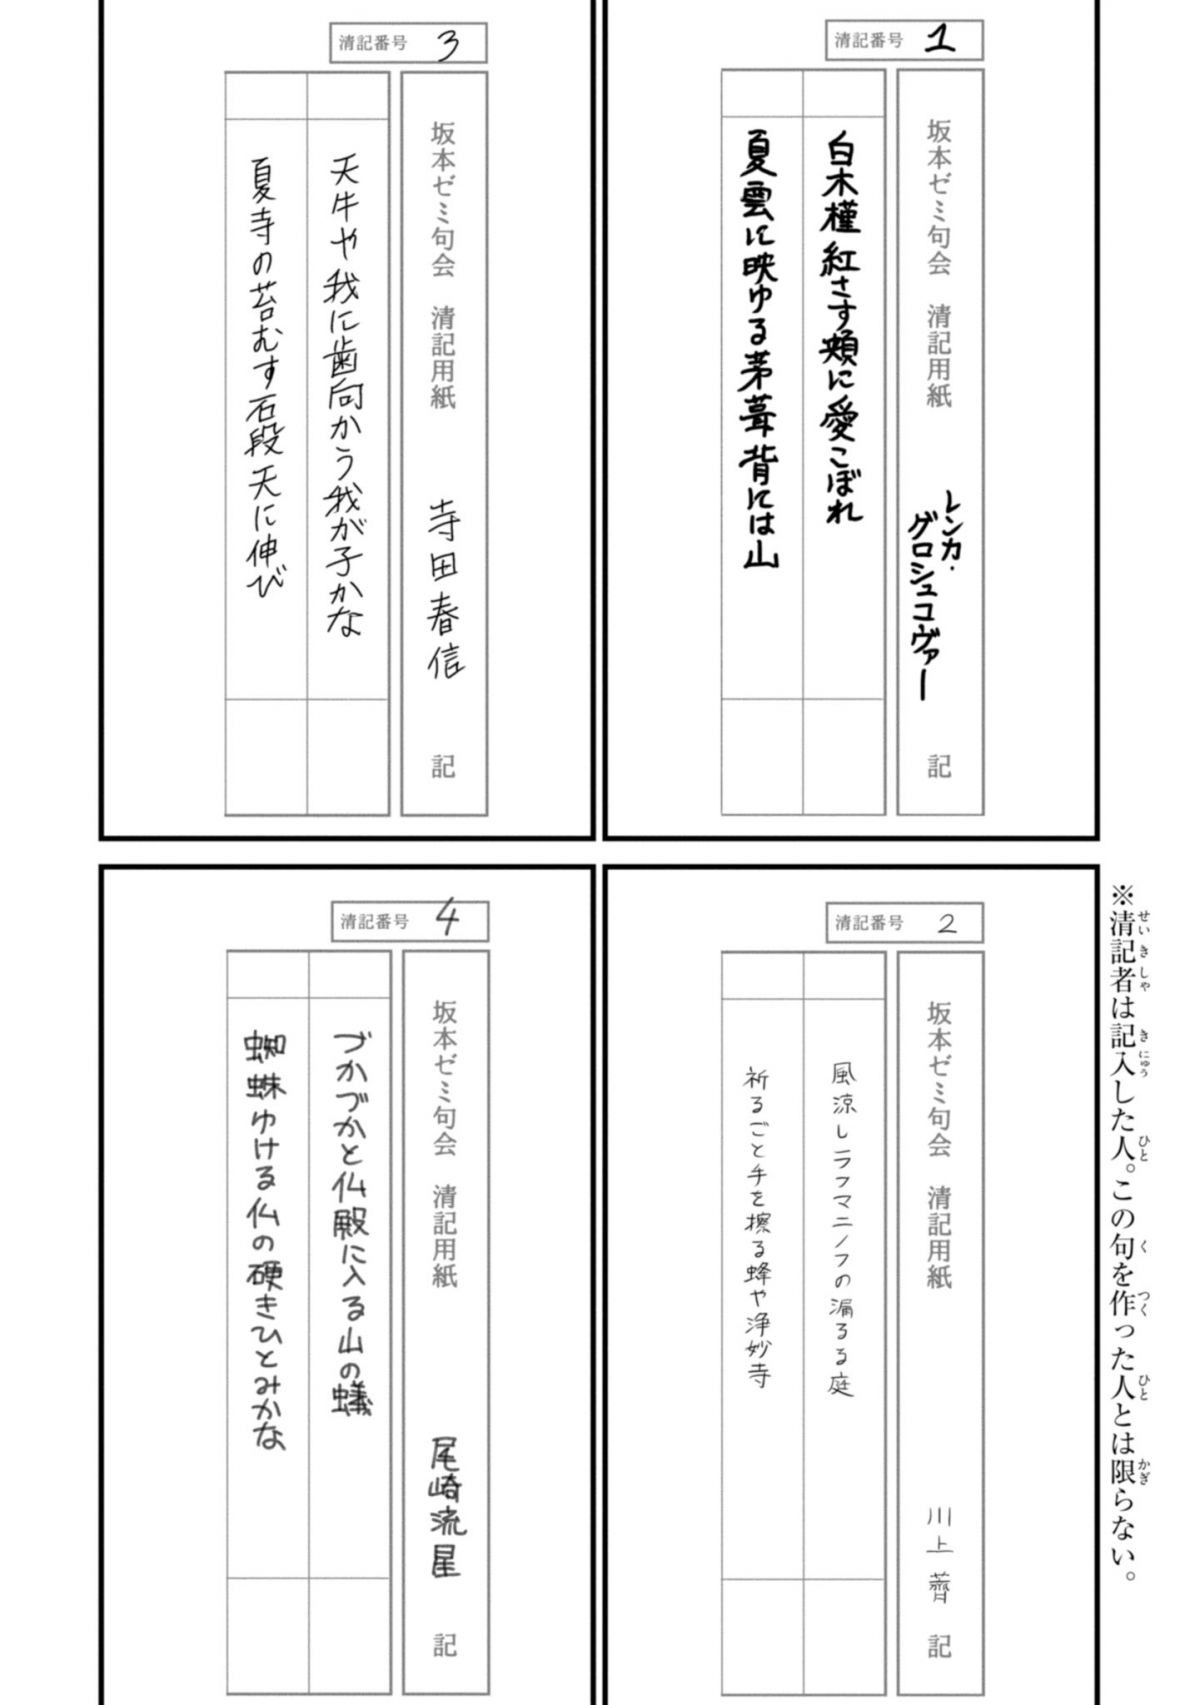 清記番号 1
坂本ゼミ句会 清記用紙 レンカ・グロシュコヴァー 記
白木槿紅さす頬に愛こぼれ
夏雲に映ゆる茅葺背には山
※清記者は記入した人。この句を作った人とは限らない。
せいきしゃ きにゅう ひと く つく ひと かぎ
清記番号 2
坂本ゼミ句会 清記用紙 川上薺 記
風涼しラフマニノフの漏るる庭
祈るごと手を擦る蜂や浄妙寺
清記番号 3
坂本ゼミ句会 清記用紙 寺田春信 記
天牛や我に歯向かう我が子かな
夏寺の苔むす石段天に伸び
清記番号 4
坂本ゼミ句会 清記用紙 尾崎流星 記
づかづかと仏殿に入る山の蟻
蜘蛛ゆける仏の硬きひとみかな